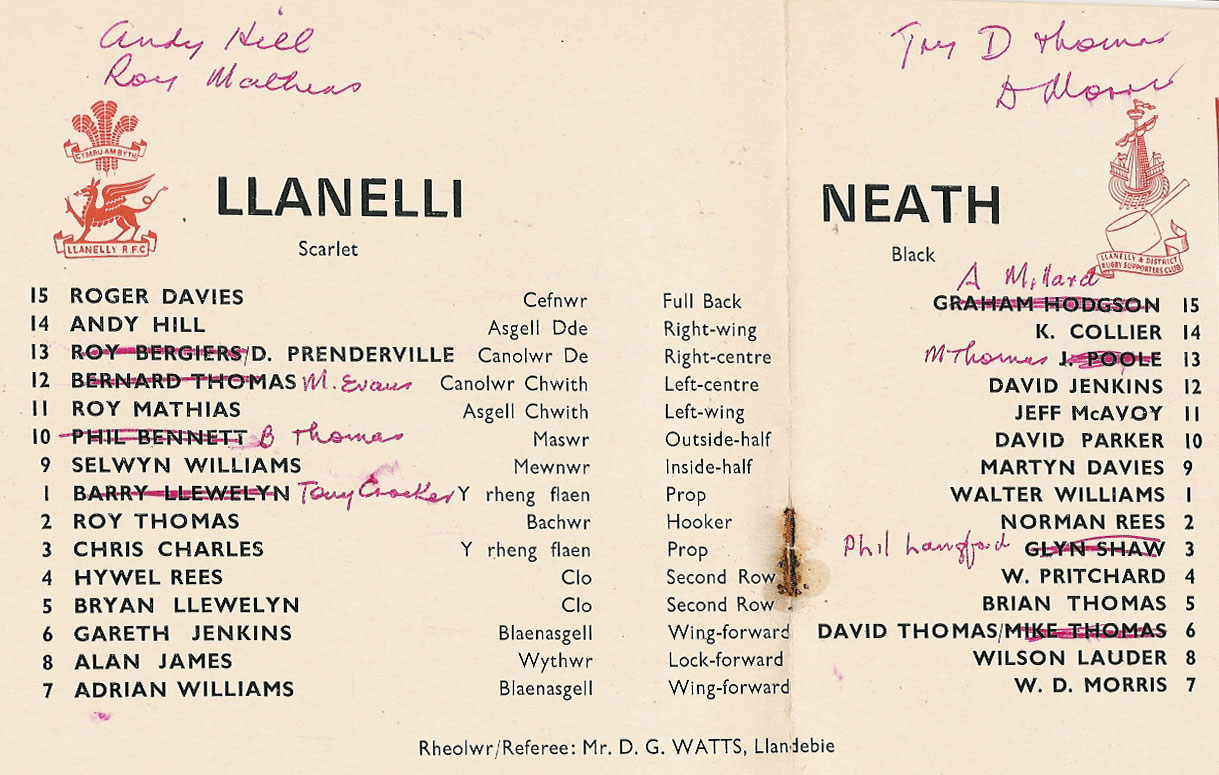 Andy Hill
Roy Mathias
Try D Thomas
D Morris
CYMRU AM BYTH
LLANELLY R.F.C
LLANELLI
Scarlet
NEATH
Black
LLANELLY & DISTRICT
RUGBY SUPPORTERS CLUB
A Millard
15 ROGER DAVIES Cefnwr Full Back GRAHAM HODGSON 15
14 ANDY HILL Asgell Dde Right-wing K. COLLIER 14
13 ROY BERGIERS/D. PRENDERVILLE Canolwr De Right-centre M Thomas J. POOLE 13
12 BERNARD THOMAS M. Evans Canolwr Chwith Left-centre DAVID JENKINS 12
11 ROY MATHIAS Asgell Chwith Left-wing JEFF McAVOY 11
10 PHIL BENNETT B Thomas Maswr Outside-half DAVID PARKER 10
9 SELWYN WILLIAMS Mewnwr Inside-half MARTYN DAVIES 9
1 BARRY LLEWELYN Tony Crocker Y rheng flaen Prop WALTER WILLIAMS 1
2 ROY THOMAS Bachwr Hooker NORMAN REES 2
3 CHRIS CHARLES Y rheng flaen Prop Phil Langford GLYN SHAW 3
4 HYWEL REES Clo Second Row W. PRITCHARD 4
5 BRYAN LLEWELYN Clo Second Row BRIAN THOMAS 5
6 GARETH JENKINS Blaenasgell Wing-forward DAVID THOMAS/MIKE THOMAS 6
8 ALAN JAMES Wythwr Lock-forward WILSON LAUDER 8
7 ADRIAN WILLIAMS Blaenasgell Wing-forward W. D. MORRIS 7
Rheolwr/Referee: Mr. D. G. WATTS, Llandebie